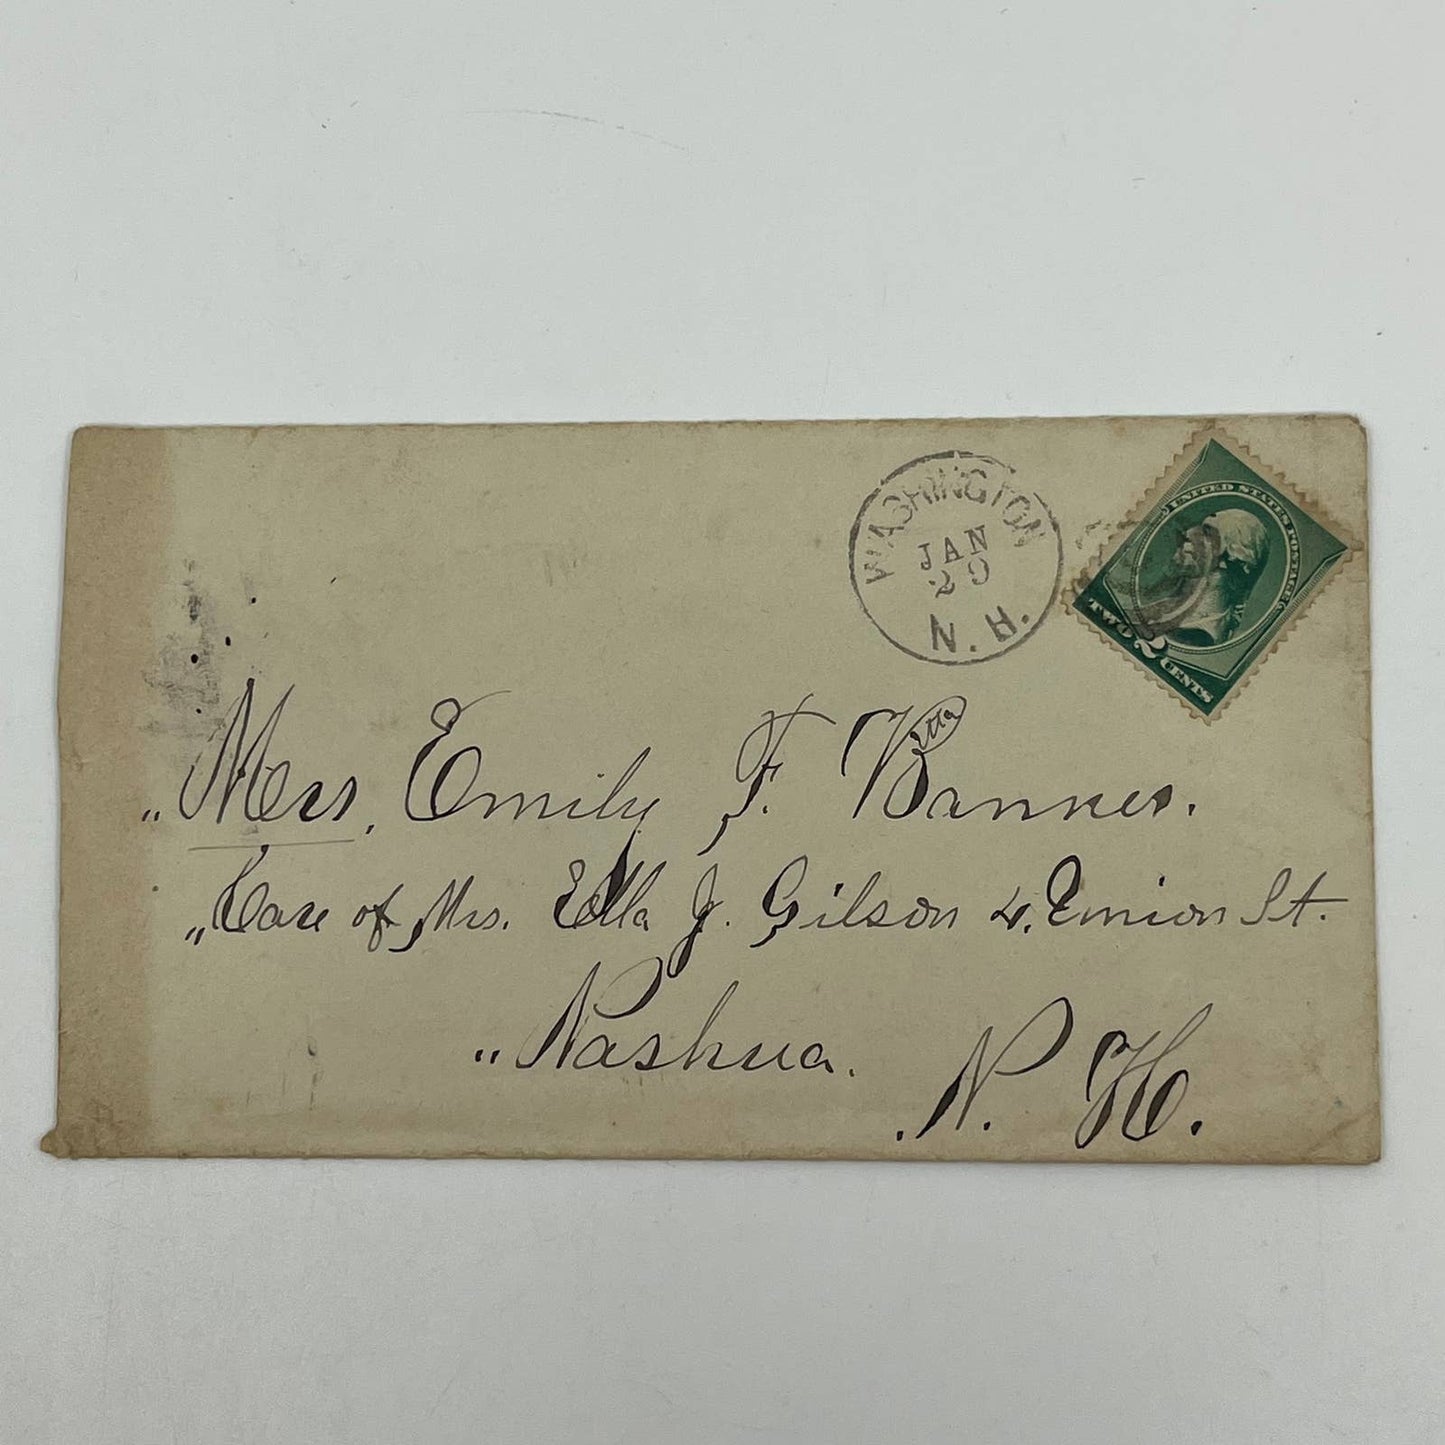 WASHINGTON
JAN
29
N.H.
UNITED STATES POSTAGE
TWO 2 CENTS
„ Mrs. Emily F. Banner.
„ Care of Mrs. Ella J. Gilson 4. Emion St.
„ Nashua.
. N. H.